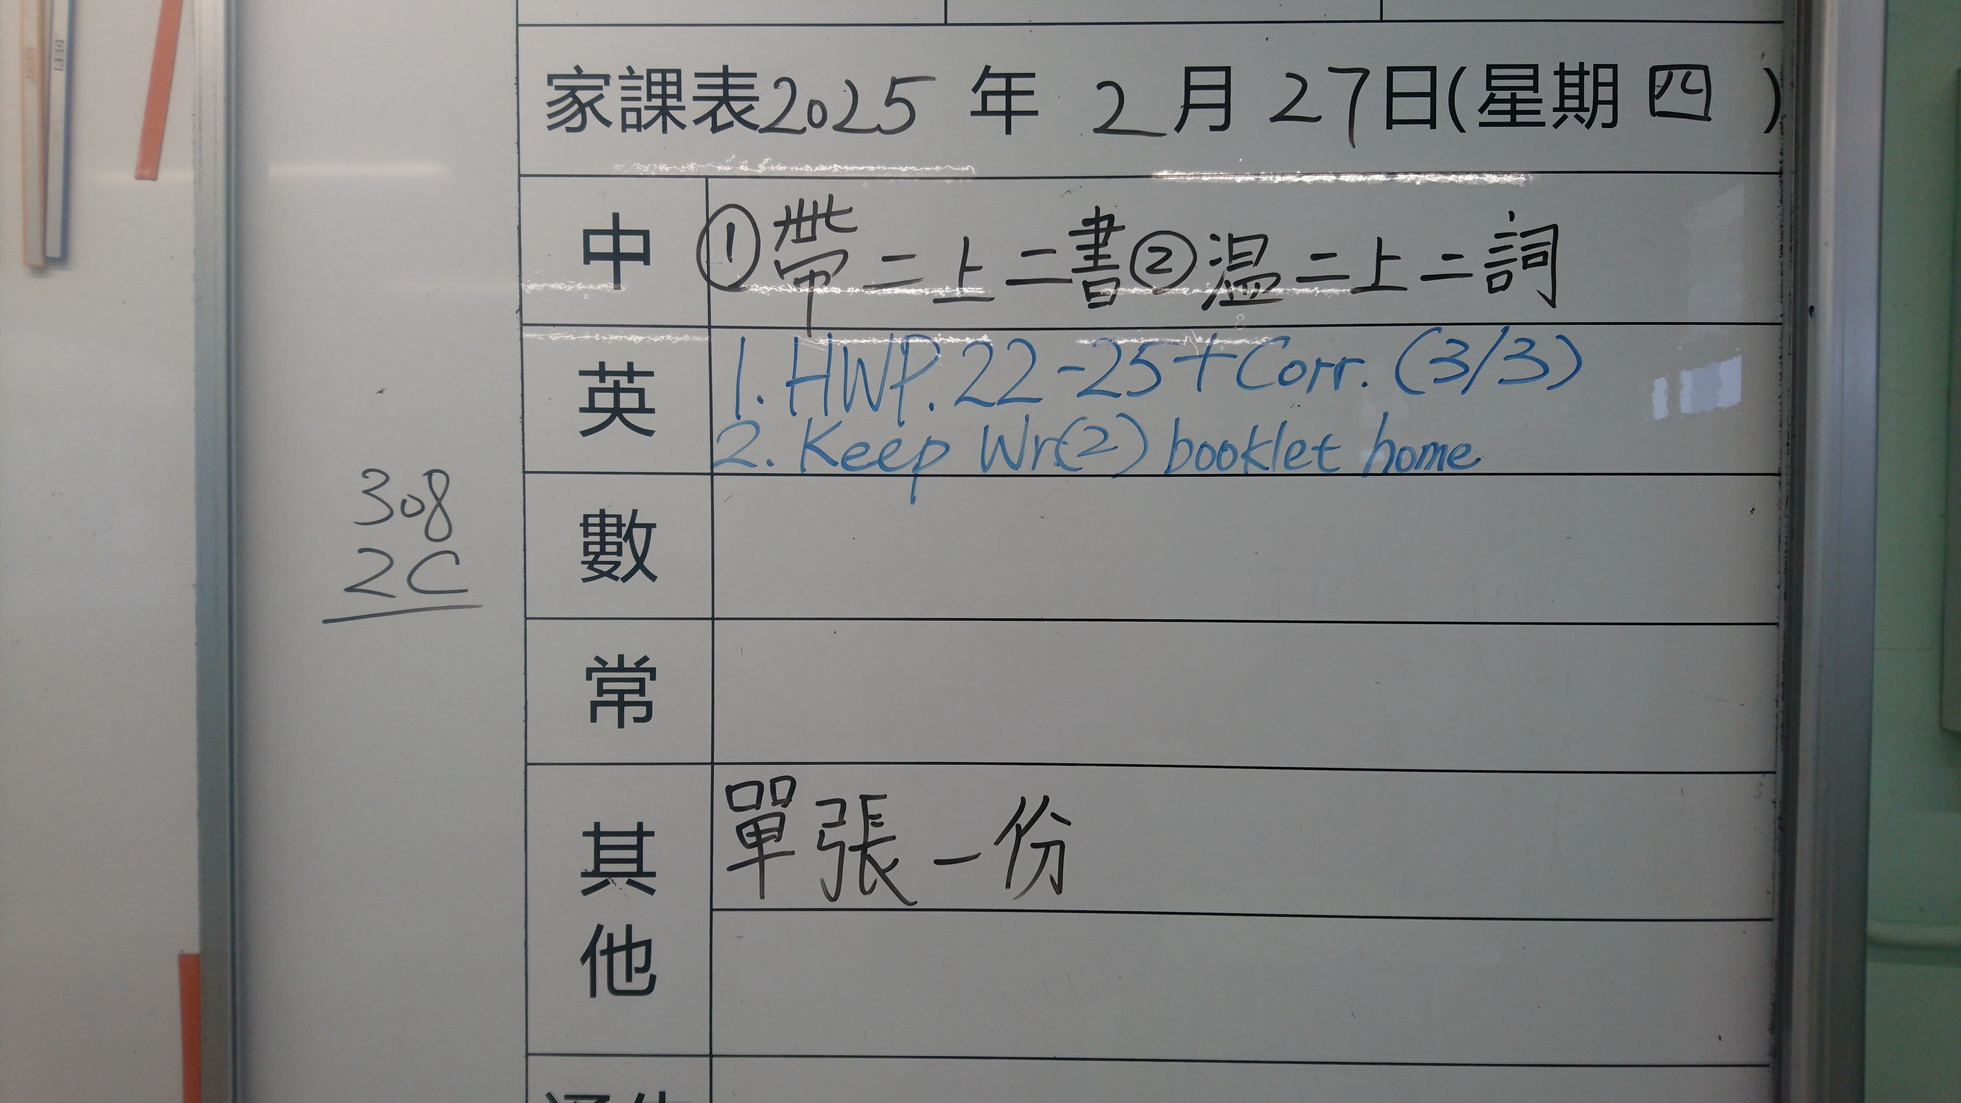 家課表2025年2月27日(星期四)
中 ①帶二上二書②溫二上二詞
英 1. HWP. 22-25+Corr. (3/3)
2. Keep Wr(2) booklet home
數
常
其他 單張一份
308
2C